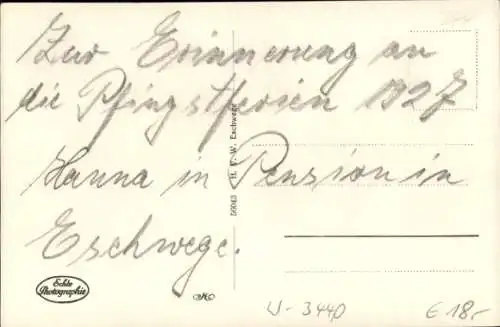 Zur Erinnerung an
die Pfingstferien 1927
Hanna in Pension in
Eschwege.
56043 H. F. W. Eschwege
Echte
Photographie
W-3440
€ 18,-